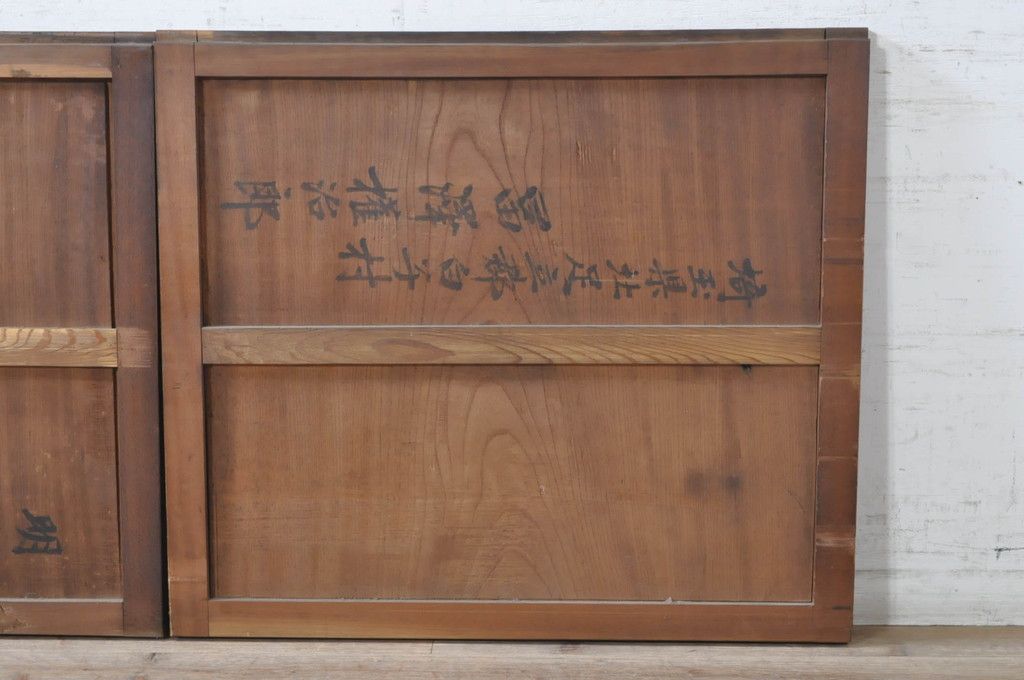 明
埼玉県北足立郡白子村
冨澤権治郎